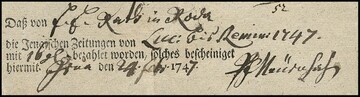 52
Daß von J. J. Rath in Roda
die Jenaischen Zeitungen von Luc: bis Remin: 1747.
mit 16 gl bezahlet worden, solches bescheiniget
hiermit. Jena den 24 1747